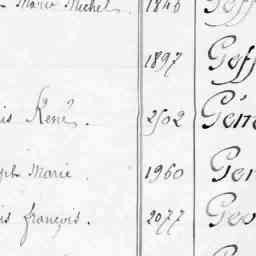 Marie Michel. 1846 Geff
1897 Geff
is René. 2502
ph Marie 1960 Ger
is françois. 2077 Geo